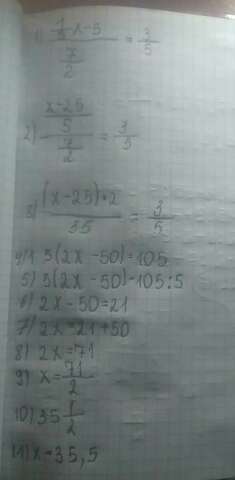 1) (1/5 x - 5)/(7/2) = 3/5
2) ((x-25)/5)/(7/2) = 3/5
3) ((x-25)•2)/35 = 3/5
4) 5(2x-50)=105
5) 5(2x-50)=105:5
6) 2x-50=21
7) 2x=21+50
8) 2x=71
9) x=71/2
10) 35 1/2
11) x=35,5